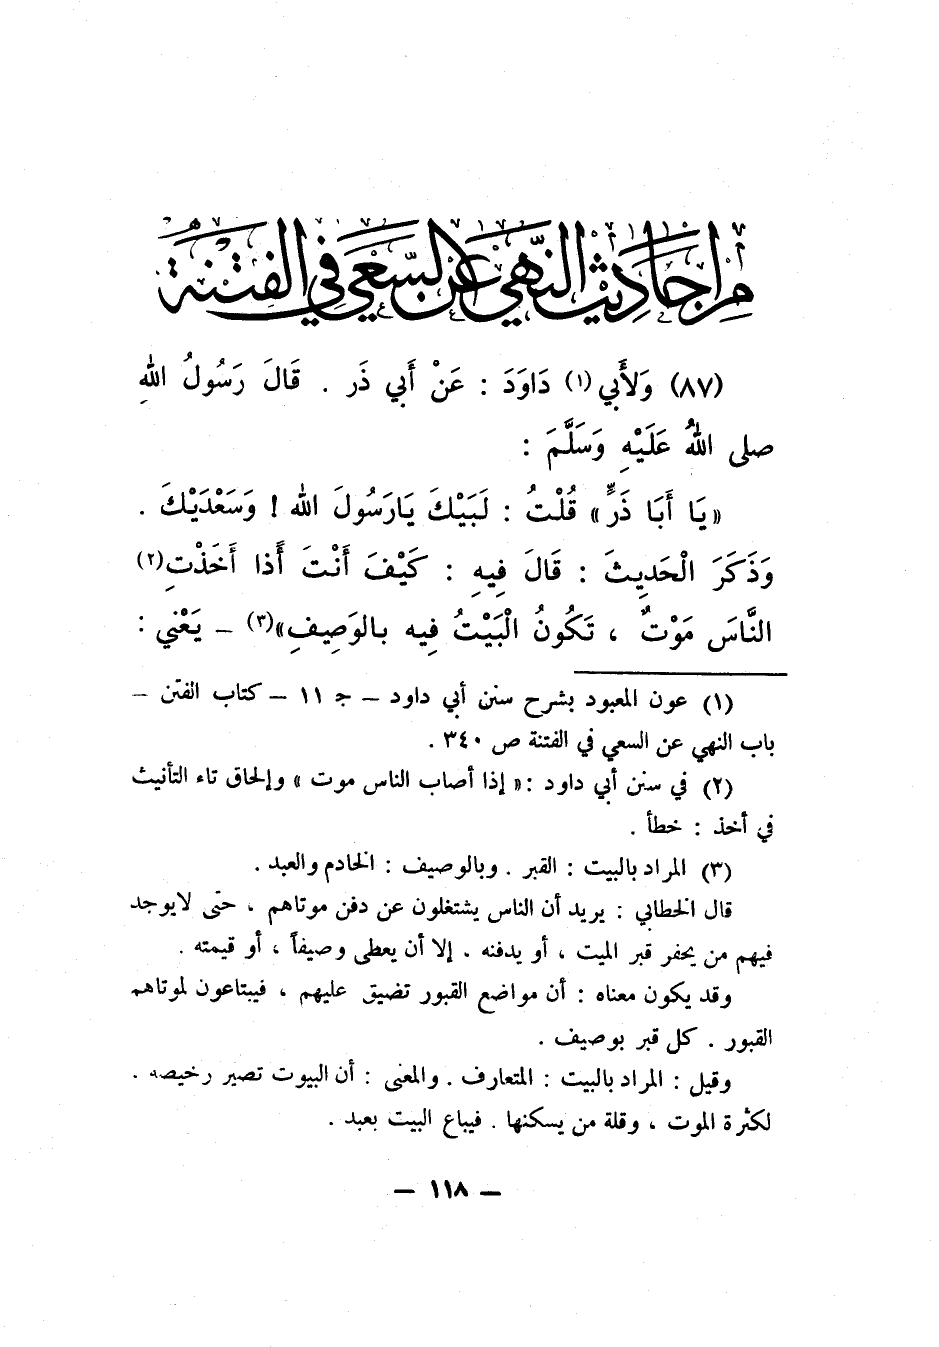 من أحاديث النهي عن السعي في الفتنة
(٨٧) وَلأَبِي(١) دَاوَدَ : عَنْ أَبِي ذَر . قَالَ رَسُولُ اللهِ
صلى اللهُ عَلَيْهِ وَسَلَّمَ :
«يَا أَبَا ذَرٍّ» قُلْتُ : لَبَيْكَ يَارَسُولَ الله ! وَسَعْدَيْكَ .
وَذَكَرَ الْحَدِيثَ : قَالَ فِيهِ : كَيْفَ أَنْتَ أَذا أَخَذْتِ(٢)
النَّاسَ مَوْتٌ ، تَكُونُ الْبَيْتُ فِيه بالوَصِيفِ»(٣) – يَعْنِي :
(١) عون المعبود بشرح سنن أبي داود – جـ ١١ – كتاب الفتن –
باب النهي عن السعي في الفتنة ص ٣٤٠ .
(٢) في سنن أبي داود :« إذا أصاب الناس موت » وإلحاق تاء التأنيث
في أخذ : خطأ .
(٣) المراد بالبيت : القبر . وبالوصيف : الخادم والعبد .
قال الخطابي : يريد أن الناس يشتغلون عن دفن موتاهم ، حتى لايوجد
فيهم من يحفر قبر الميت ، أو يدفنه . إلا أن يعطى وصيفاً ، أو قيمته .
وقد يكون معناه : أن مواضع القبور تضيق عليهم ، فيبتاعون لموتاهم
القبور . كل قبر بوصيف .
وقيل : المراد بالبيت : المتعارف . والمعنى : أن البيوت تصير رخيصه .
لكثرة الموت ، وقلة من يسكنها . فيباع البيت بعبد .
– ١١٨ –